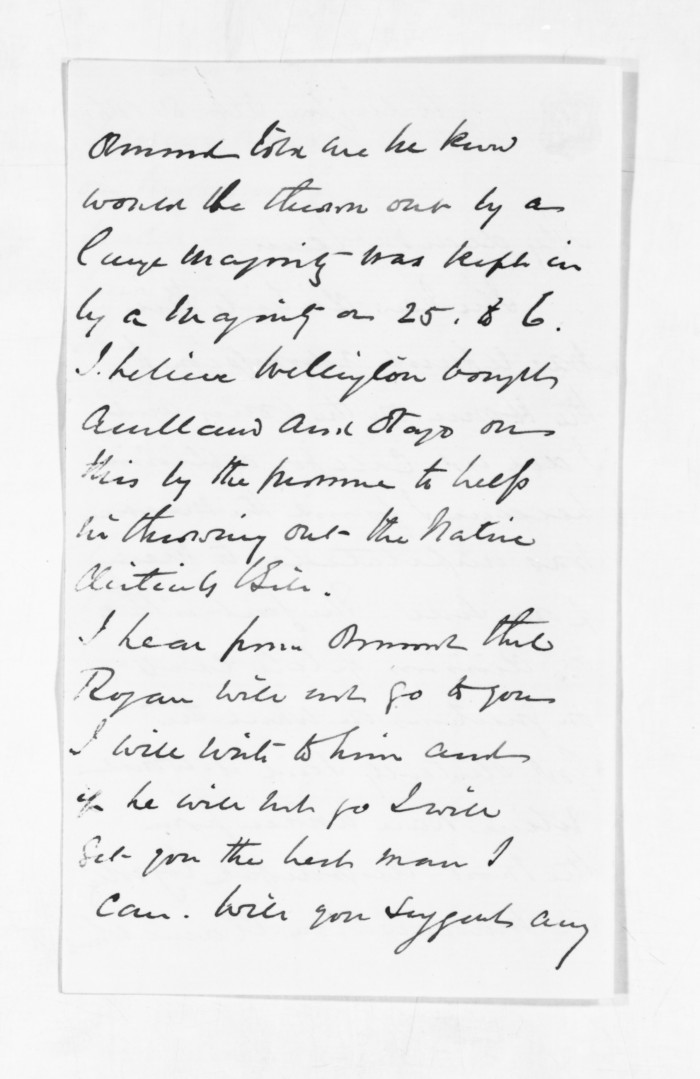 Ormond told me he knew
would be thrown out by a
large majority was kept in
by a majority of 25. to 6.
I believe Wellington bought
Auckland and Otago on
this by the promise to help
in throwing out the Native
districts Bill.
I hear from Ormond that
Rogan will not go to you
I will write to him and
if he will not go I will
get you the best man I
can. Will you suggest any